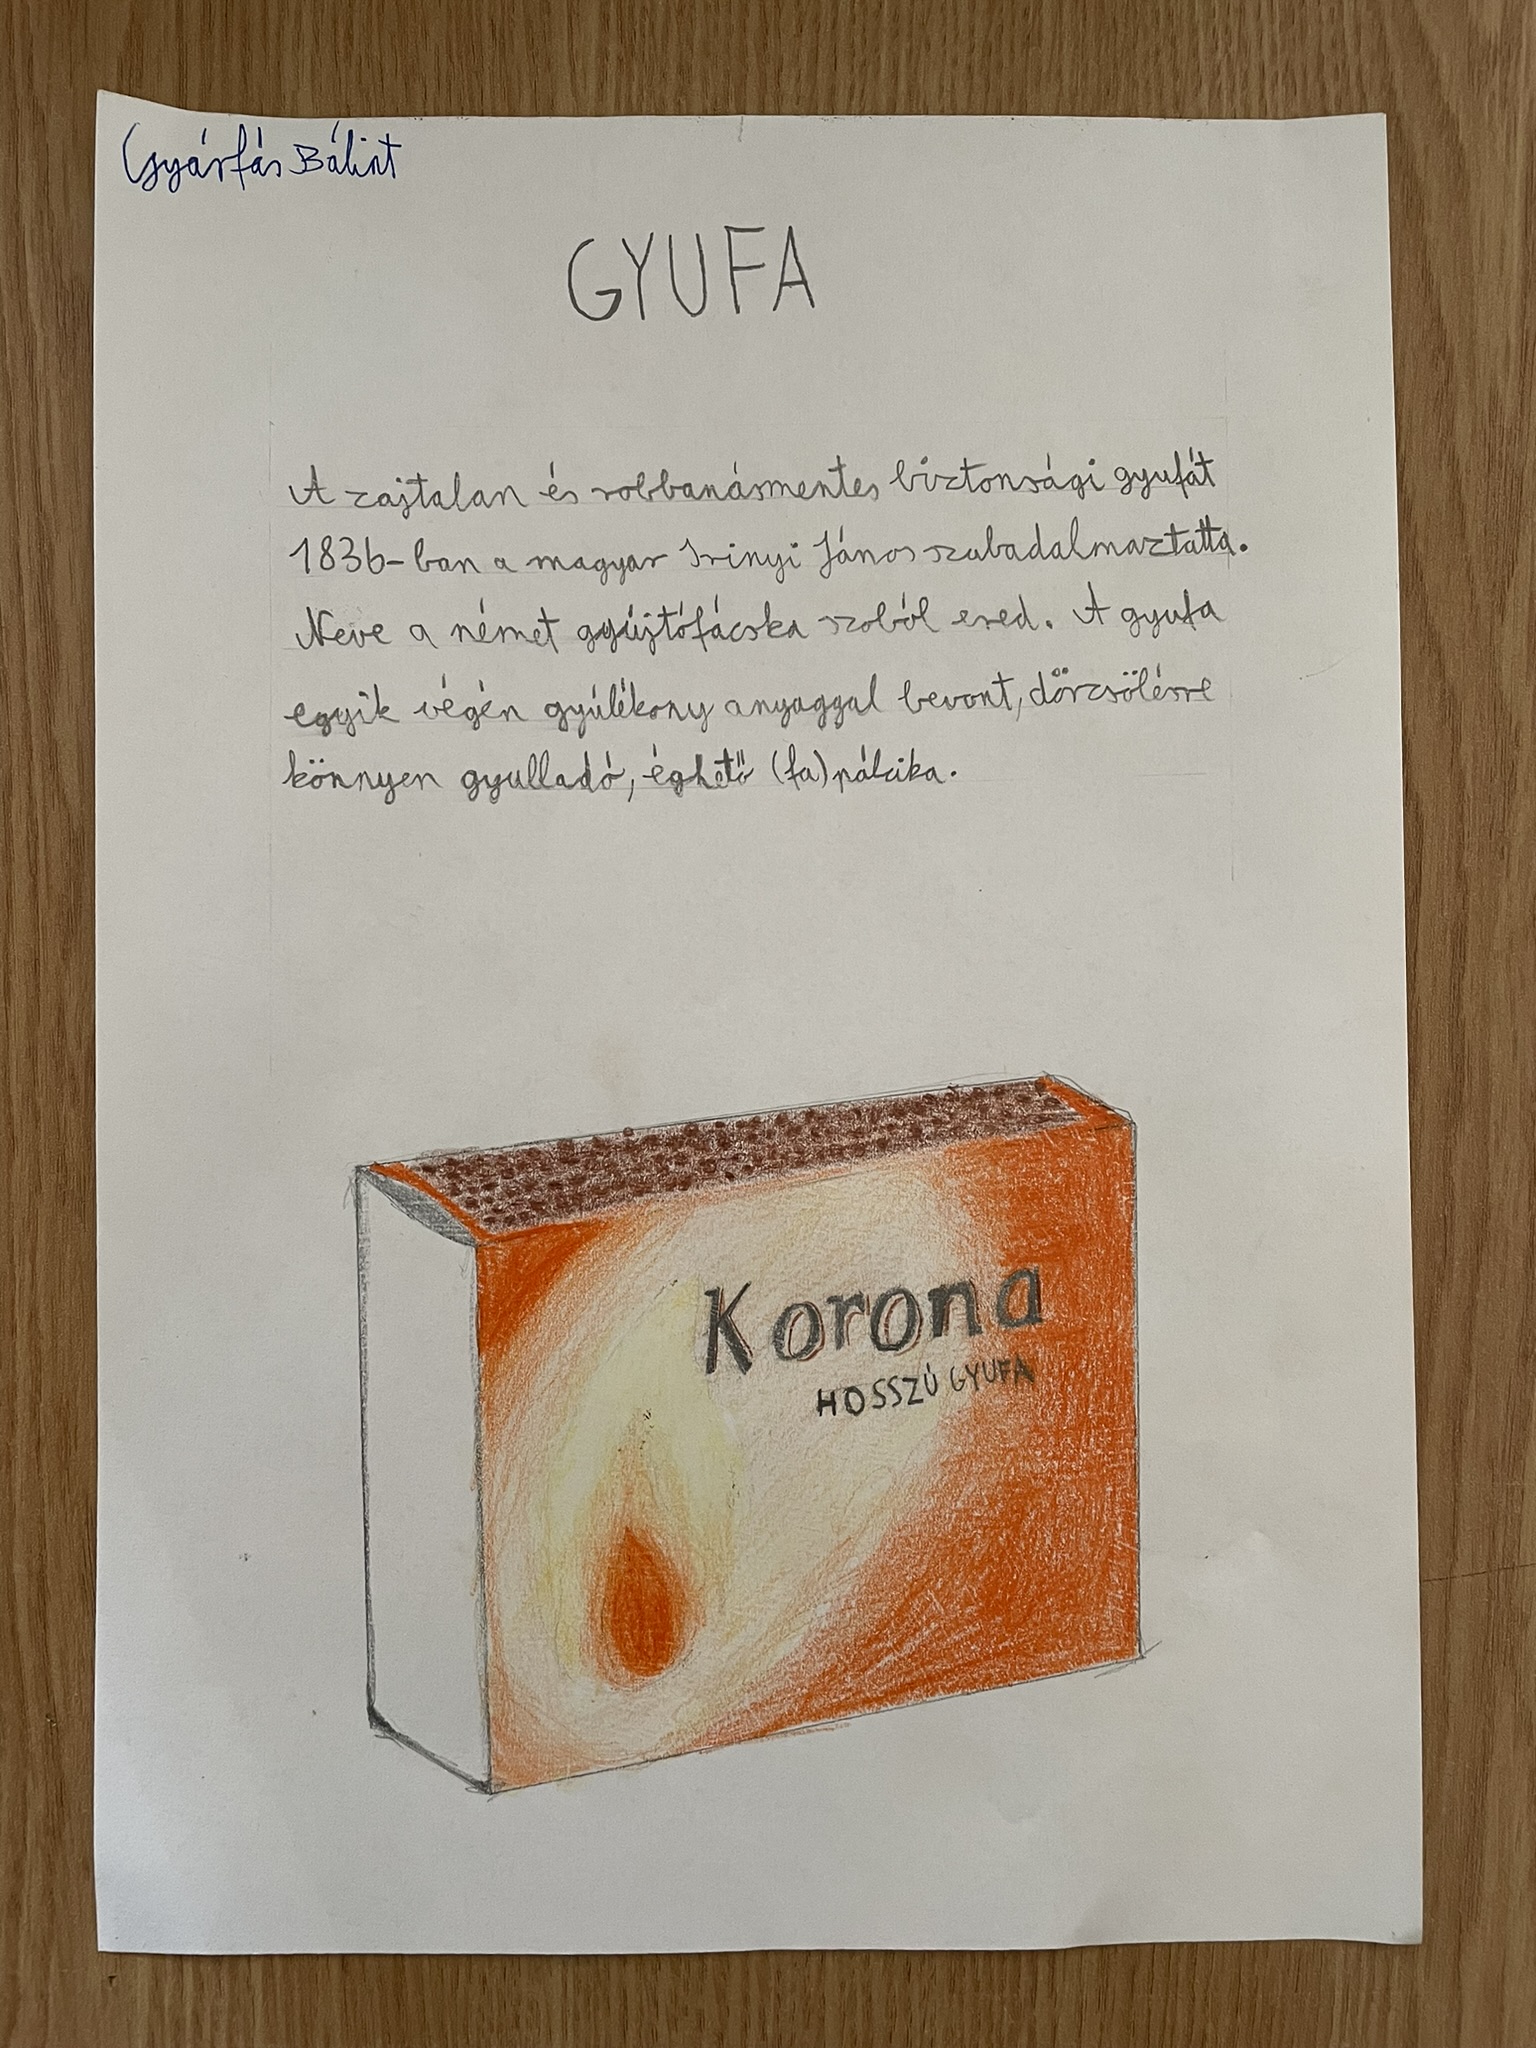 Gyárfás Bálint
GYUFA
A zajtalan és robbanásmentes biztonsági gyufát
1836-ban a magyar Irinyi János szabadalmaztatta.
Neve a német gyújtófácska szoból ered. A gyufa
egyik végén gyúlékony anyaggal bevont, dörzsölésre
könnyen gyulladó, éghető (fa)pálcika.
Korona
HOSSZÚ GYUFA